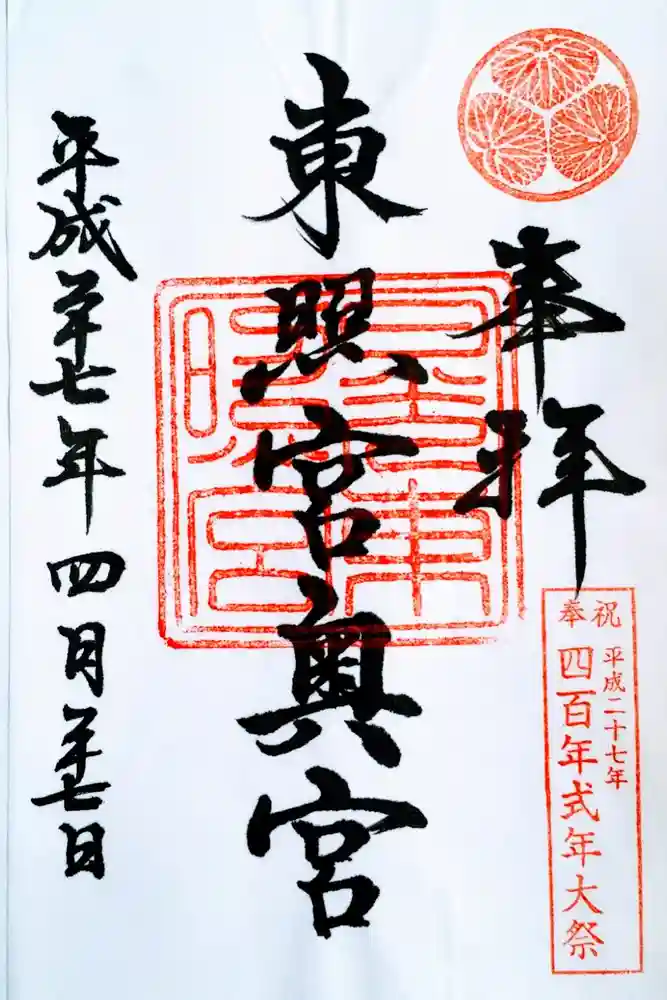 奉拝
東照宮奥宮
平成二十七年四月二十七日
奉祝
平成二十七年
四百年式年大祭